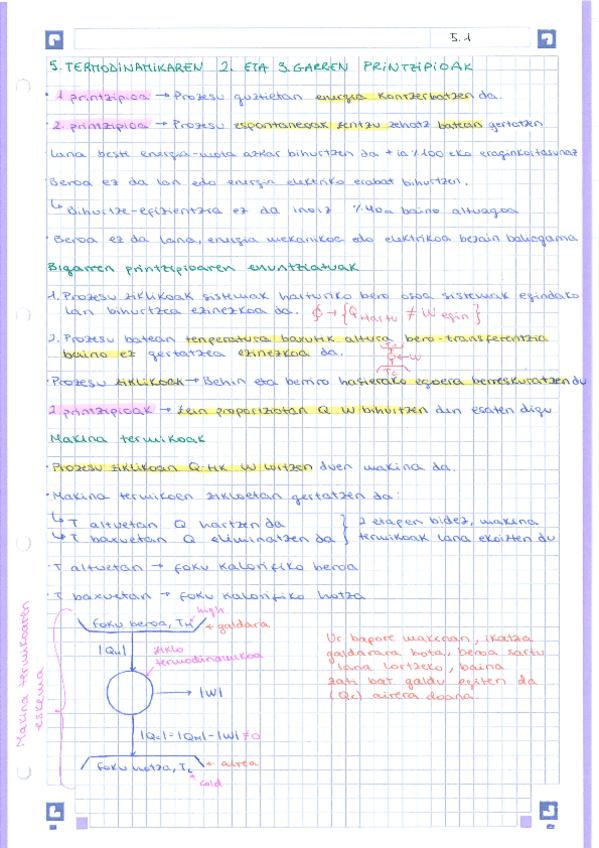 5.1
5. TERMODINAMIKAREN 2. ETA 3. GARREN PRINTZIPIOAK
· 1. printzipioa → Prozesu guztietan energia kontserbatzen da.
· 2. printzipioa → Prozesu espontaneoak zentzu zehatz batean gertatzen
· Lana beste energia-mota azkar bihurtzen da + ia %100 eko eraginkortasunaz
· Beroa ez da lan edo energia elektriko erabat bihurtzen.
↳ Bihurtze-efizientzia ez da inoiz %40a baino altuagoa
· Beroa ez da lana, energia mekanikoa edo elektrikoa bezain baliogarria
Bigarren printzipioaren enuntziatuak
1. Prozesu ziklikoak sistemak harturiko bero osoa sistemak egindako
lan bihurtzea ezinezkoa da. ∮ → {Q hartu ≠ W egin}
2. Prozesu batean tenperatura baxutik altura bero-transferentzia
baino ez gertatzea ezinezkoa da.
← W
· Prozesu ziklikoak → Behin eta berriro hasierako egoera berreskuratzen du
2 printzipioak → Zein proportziotan Q W bihurtzen den esaten digu
Makina termikoak
· Prozesu ziklikoan Q-tik W lortzen duen makina da.
· Makina termikoen zikloetan gertatzen da:
↳ T altuetan Q hartzen da
↳ T baxuetan Q eliminatzen da
2 etapen bidez, makina
termikoak lana ekoizten du
· T altuetan → foku kalorifiko beroa
· T baxuetan → foku kalorifiko hotza
Makina termikoaren
eskema
high
foku beroa, TH
← galdara
|QH|
ziklo
termodinamikoa
→ |W|
|Qc| = |QH| - |W| ≠ 0
foku hotza, Tc
← airea
cold
Ur bapore makinan, ikatza
galdarara bota, beroa sartu
lana lortzeko, baina
zati bat galdu egiten da
(Qc) airera doana